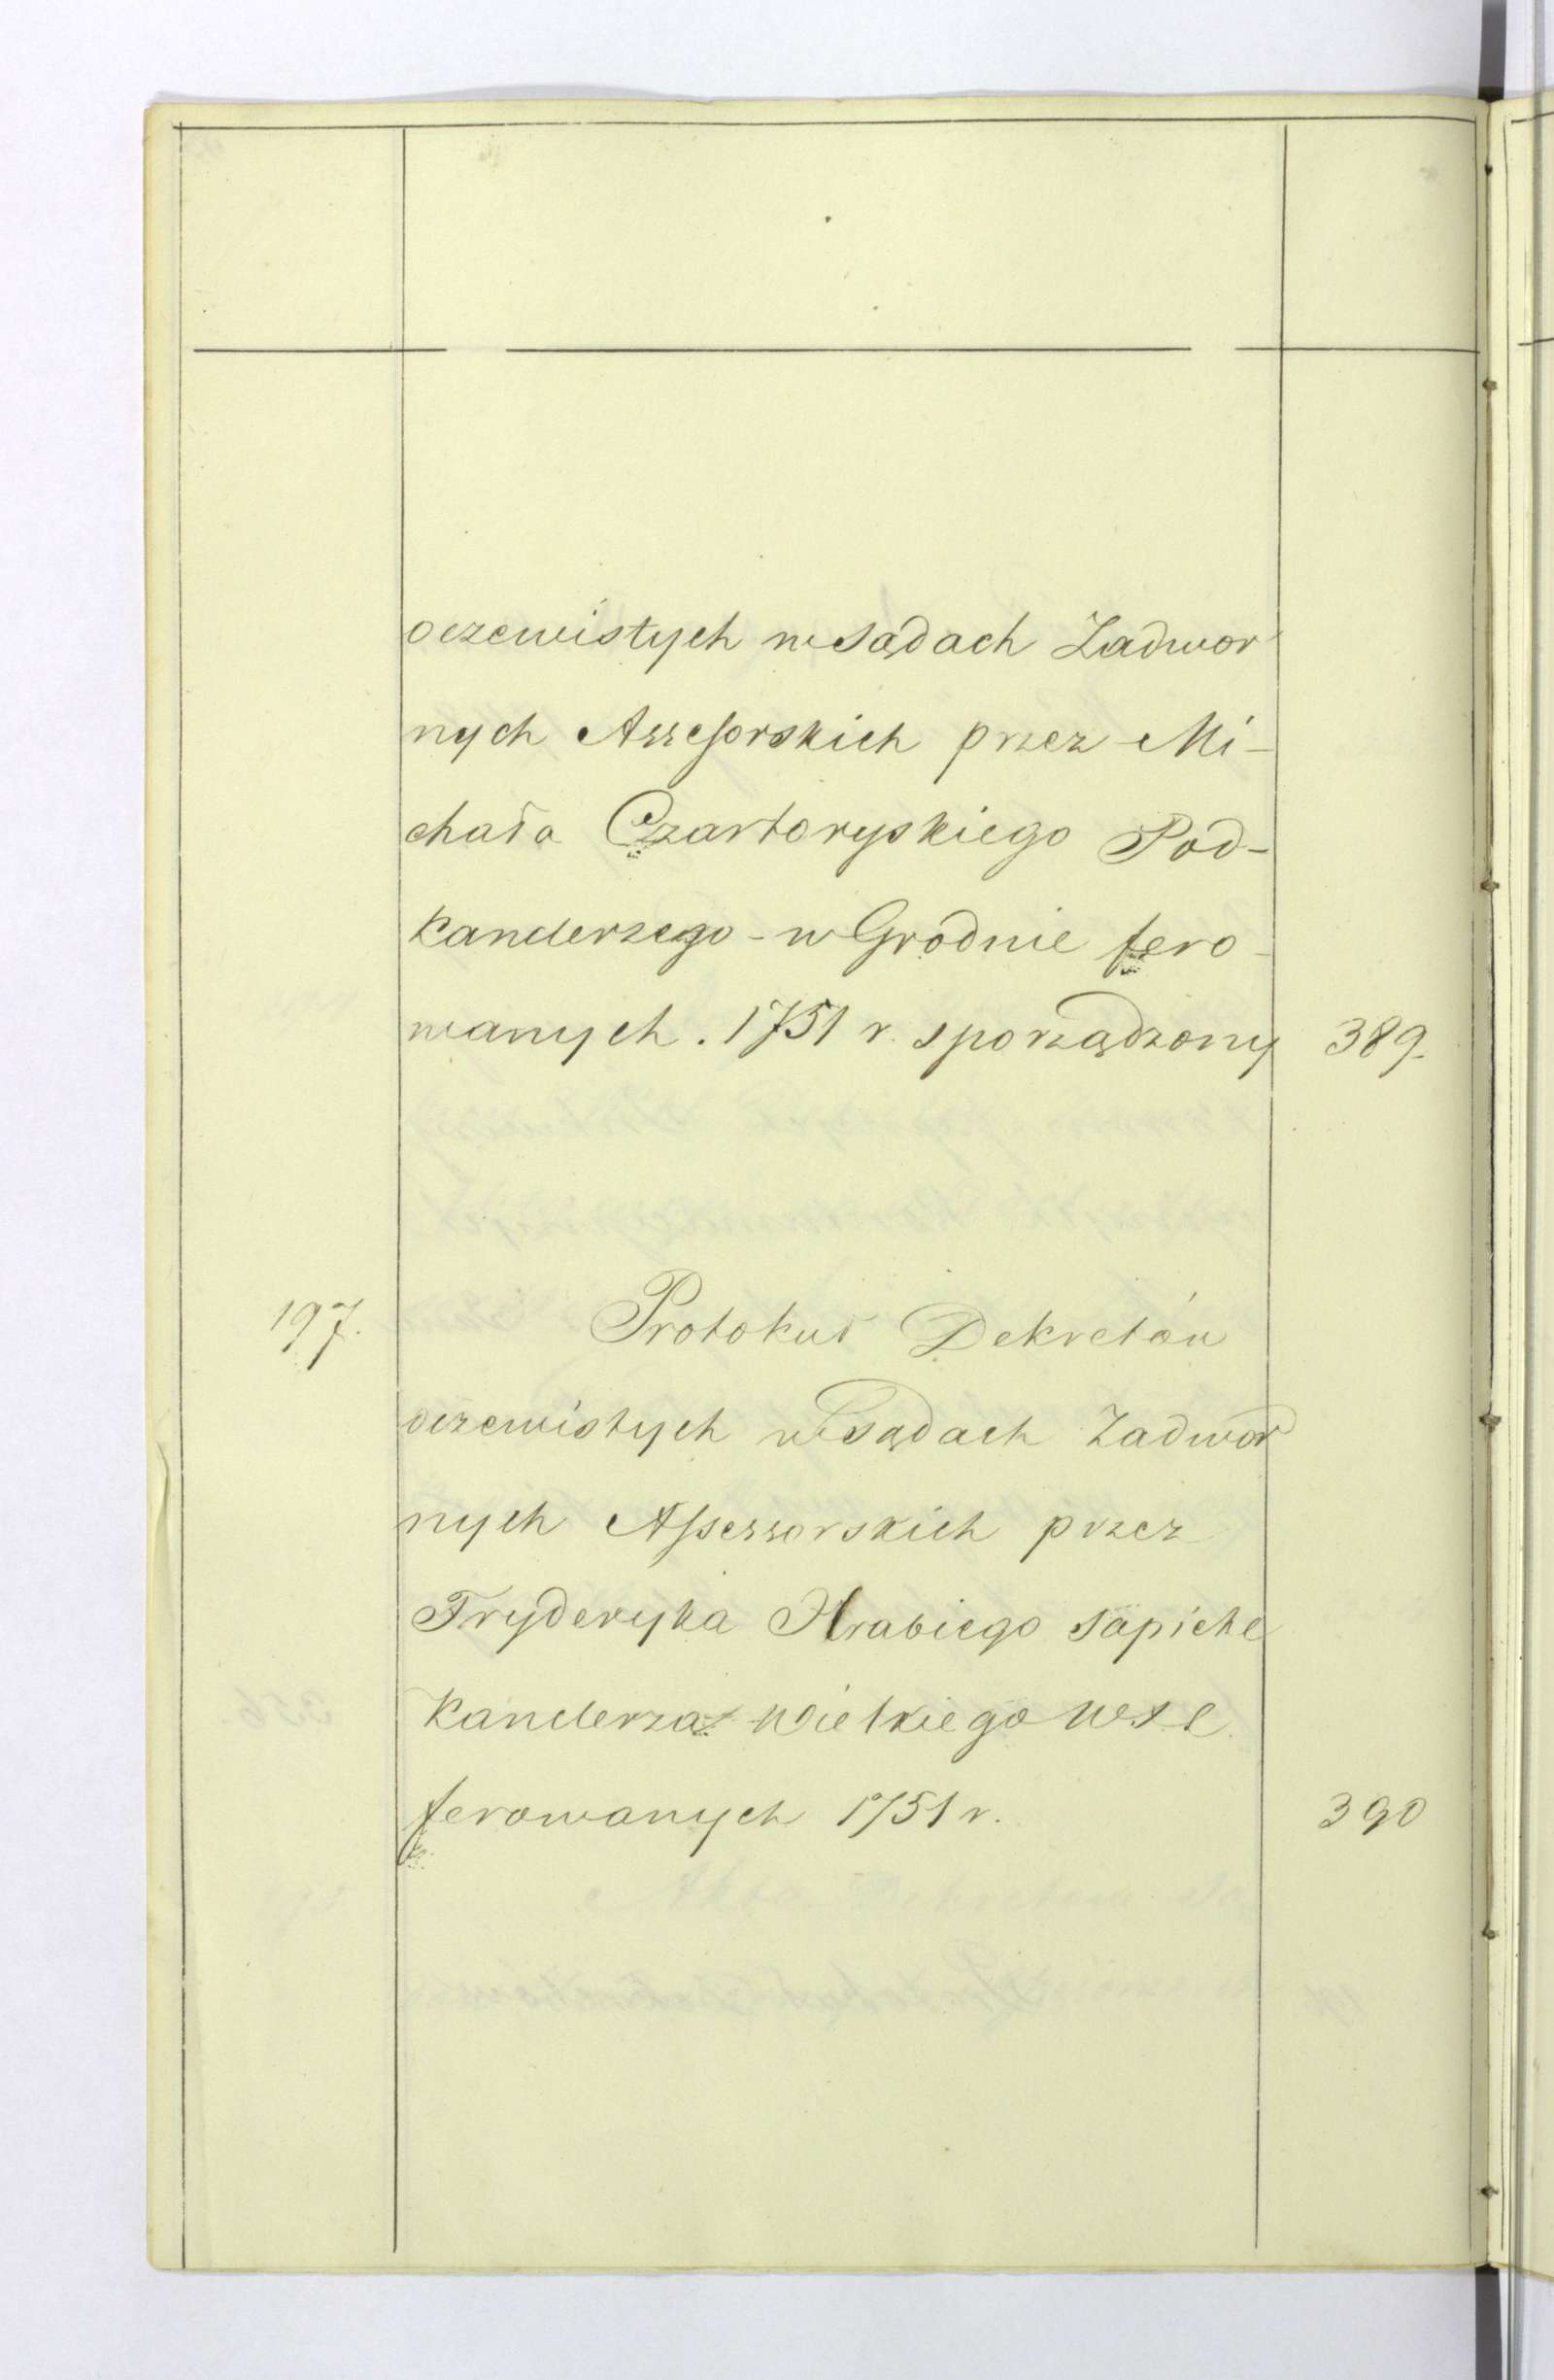 oczewistych w Sądach Zadwor
nych Assesorskich przez Mi-
chała Czartoryskiego Pod-
kanclerzego - w Grodnie fero-
wanych. 1751 r. sporządzony 389.
197. Protokuł Dekretów
oczewistych w Sądach Zadwor
nych Assessorskich przez
Fryderyka Hrabiego Sapiehe
Kanclerza Wielkiego W.X.L.
ferowanych 1751 r. 390